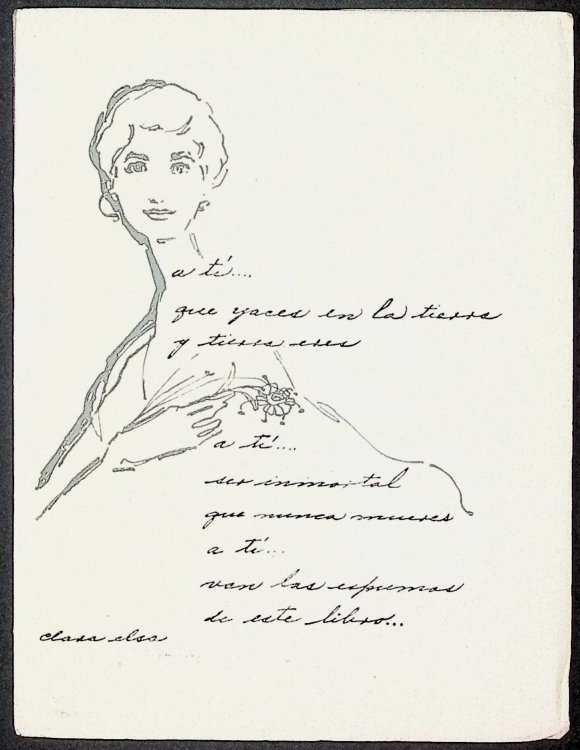 a tí....
que yaces en la tierra
y tierra eres
a tí....
ser inmortal
que nunca mueres
a tí...
van las espumas
de este libro...
clara elsa